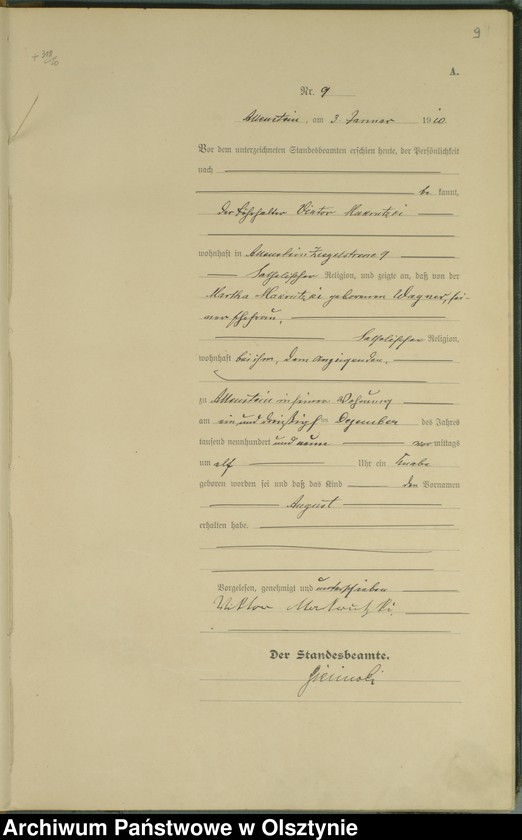 9
A.
Nr. 9
Allenstein, am 3. Januar 1910.
Vor dem unterzeichneten Standesbeamten erschien heute, der Persönlichkeit
nach
be kannt,
der Viktor
wohnhaft in Allenstein 9
katholischer Religion, und zeigte an, daß von der
Martha geborenen Wagner, sei-
ner Ehefrau,
katholischer Religion,
wohnhaft bei ihm, dem Anzeigenden,
zu Allenstein in seiner Wohnung
am ein und dreißigsten Dezember des Jahres
tausend neunhundert und neun vor mittags
um elf Uhr ein Knabe
geboren worden sei und daß das Kind den Vornamen
August
erhalten habe.
Vorgelesen, genehmigt und unterschrieben
Viktor
Der Standesbeamte.
Archiwum Państwowe w Olsztynie